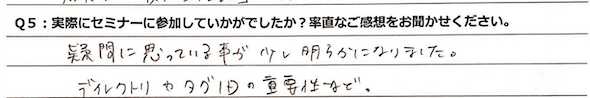 Q5：実際にセミナーに参加していかがでしたか？率直なご感想をお聞かせください。
疑問に思っている事が少し明らかになりました。
ディレクトリやタグIDの重要性など。